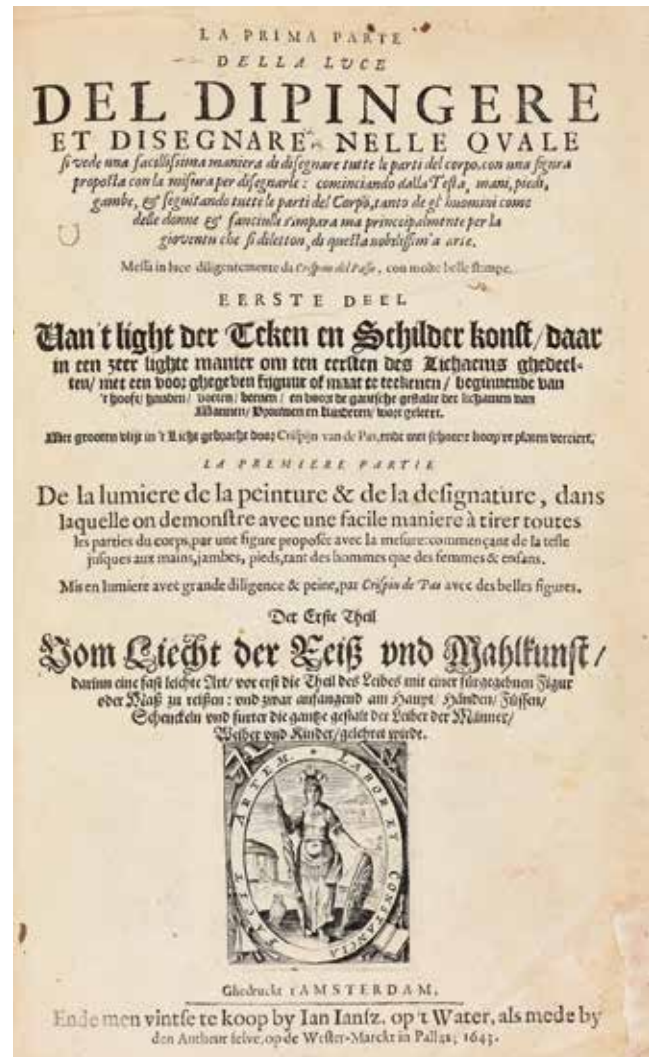 LA PRIMA PARTE
DELLA LVCE
DEL DIPINGERE
ET DISEGNARE NELLE QVALE
si vede una facilissima maniera di disegnare tutte le parti del corpo, con una figura
proposta con la misura per disegnarle: cominciando dalla Testa, mani, piedi,
gambe, & seguitando tutte le parti del Corpo, tanto de gl' huomini come
delle donne & fanciulli s'impara ma principalmente per la
gioventu che si diletton, di questa nobilissim'a arte.
Messa in luce diligentemente da Crispin del Passe, con molte belle stampe.
EERSTE DEEL
Van 't light der Teken en Schilder konst / daar
in een zeer lighte manier om ten eersten des Lichaems ghedeel-
ten / met een voor ghegeven figuur of maat te teekenen / beginnende van
't hooft / handen / voeten / beenen / en voort de gantsche gestalte der lichamen van
Mannen / Vrouwen en Kinderen / wort geleert.
Met grooten vlijt in 't Licht gebracht door Crispijn van de Pas, ende met schoone koop're platen verciert.
LA PREMIERE PARTIE
De la lumiere de la peinture & de la designature, dans
laquelle on demonstre avec une facile maniere à tirer toutes
les parties du corps, par une figure proposée avec la mesure: commençant de la teste
jusques aux mains, jambes, pieds, tant des hommes que des femmes & enfans.
Mis en lumiere avec grande diligence & peine, par Crispin de Pas avec des belles figures.
Der Erste Theil
Vom Liecht der Reiß vnd Mahlkunst /
darinn eine fast leichte Art / vor erst die Theil des Leibes mit einer fürgegebnen Figur
oder Maß zu reißen: vnd zwar anfangend am Haupt / Händen / Füssen /
Schenckeln vnd furter die gantze gestalt der Leiber der Männer /
Weiber vnd Kinder / gelehret wirdt.
FACIT ARTEM. LABOR ET CONSTANCIA
Ghedruckt t'AMSTERDAM,
Ende men vintse te koop by Ian Iansz. op 't Water, als mede by
den Autheur selve, op de Wester-Marckt in Pallas; 1643.